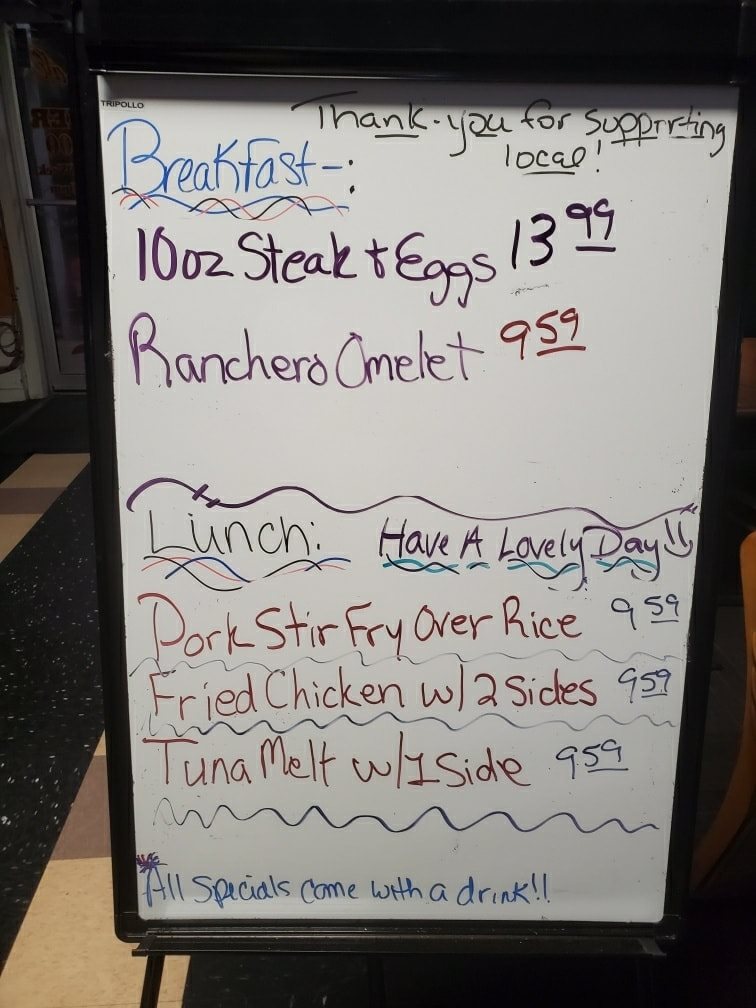 TRIPOLLO
Thank-you for supporting
local!
Breakfast-:
10oz Steak + Eggs 13 99
Ranchero Omelet 9 59
Lunch:
Have A Lovely Day!!
Pork Stir Fry Over Rice 9 59
Fried Chicken w/ 2 Sides 9 59
Tuna Melt w/1 Side 9 59
All Specials come with a drink!!